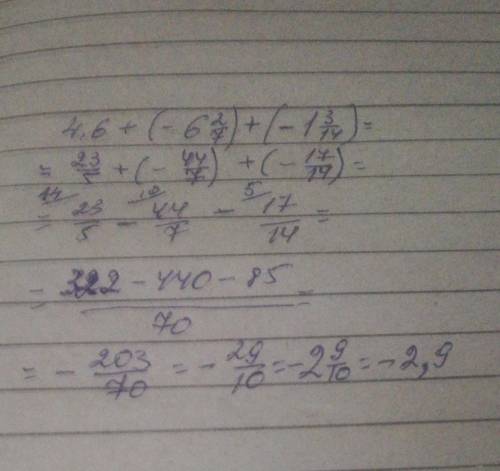 4,6 + (- 6 2/7) + (- 1 3/14) =
= 23/5 + (- 44/7) + (- 17/14) =
= 14 23/5 - 10 44/7 - 5 17/14 =
= (322 - 440 - 85)/70 =
= - 203/70 = - 29/10 = - 2 9/10 = - 2,9